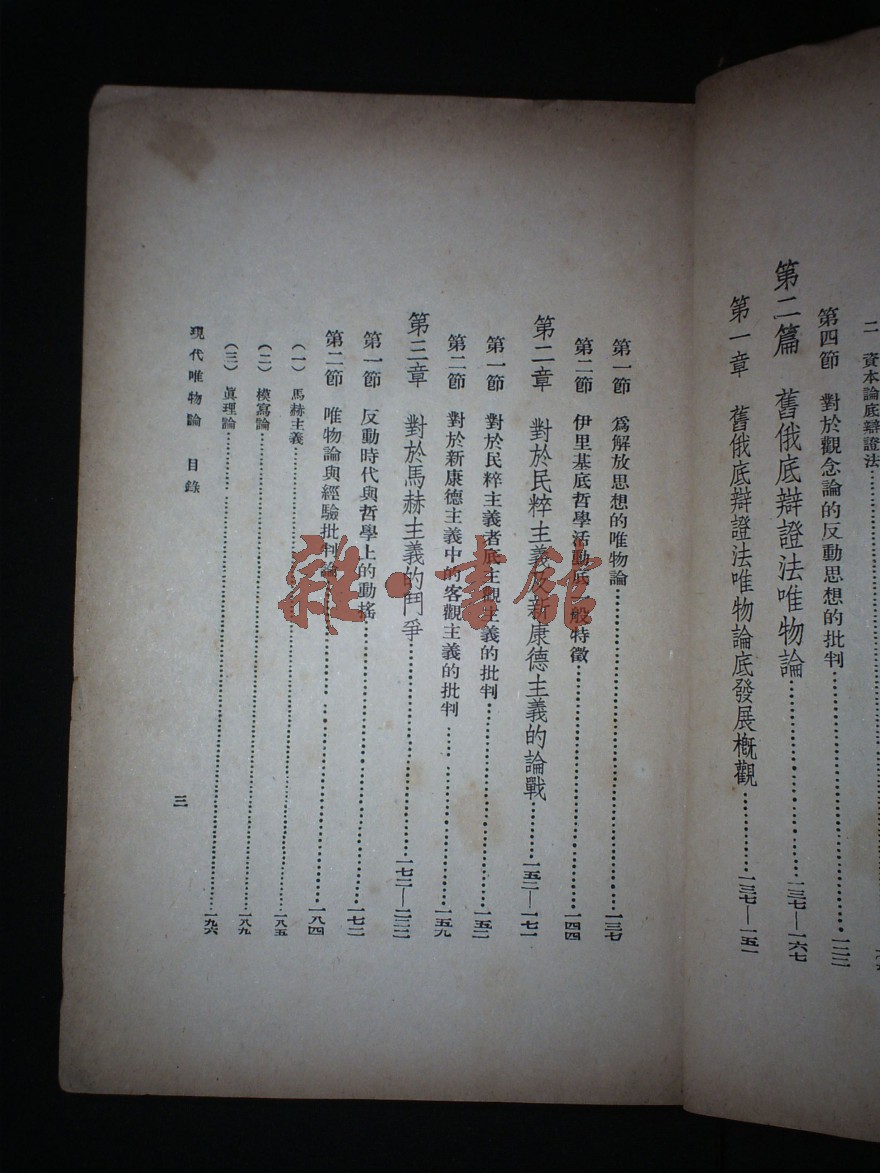 二 資本論底辯證法
第四節 對於觀念論的反動思想的批判……一二二
第二篇 舊俄底辯證法唯物論……一三七—一六七
第一章 舊俄底辯證法唯物論底發展概觀……一三七—一五一
第一節 爲解放思想的唯物論……一三七
第二節 伊里基底哲學活動底一般特徵……一四四
第二章 對於民粹主義及新康德主義的論戰……一五二—一七一
第一節 對於民粹主義者底主觀主義的批判……一五二
第二節 對於新康德主義中的客觀主義的批判……一五九
第三章 對於馬赫主義的鬥爭……一七二—二三二
第一節 反動時代與哲學上的動搖……一七二
第二節 唯物論與經驗批判論……一八四
（一）馬赫主義……一八五
（二）模寫論……一八九
（三）眞理論……一九六
現代唯物論 目錄
三
雜·書館